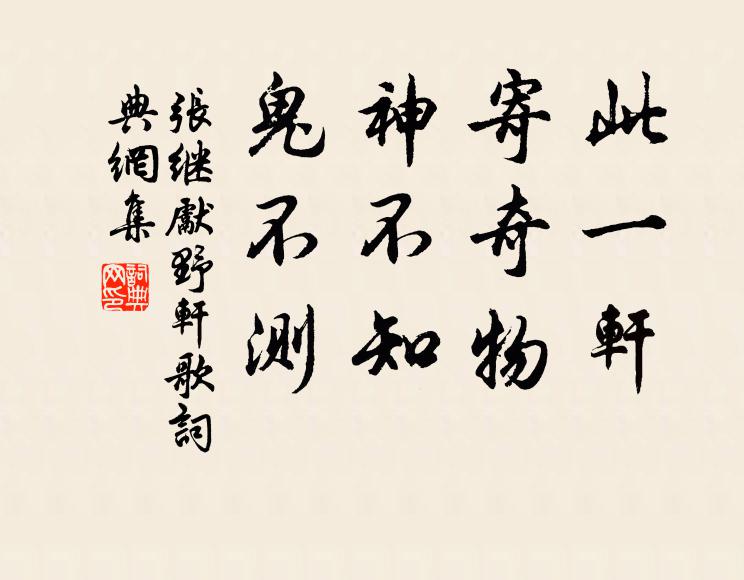 此一軒
寄奇物
神不知
鬼不測
張继獻野軒歌詞
典網集
詞典
网印